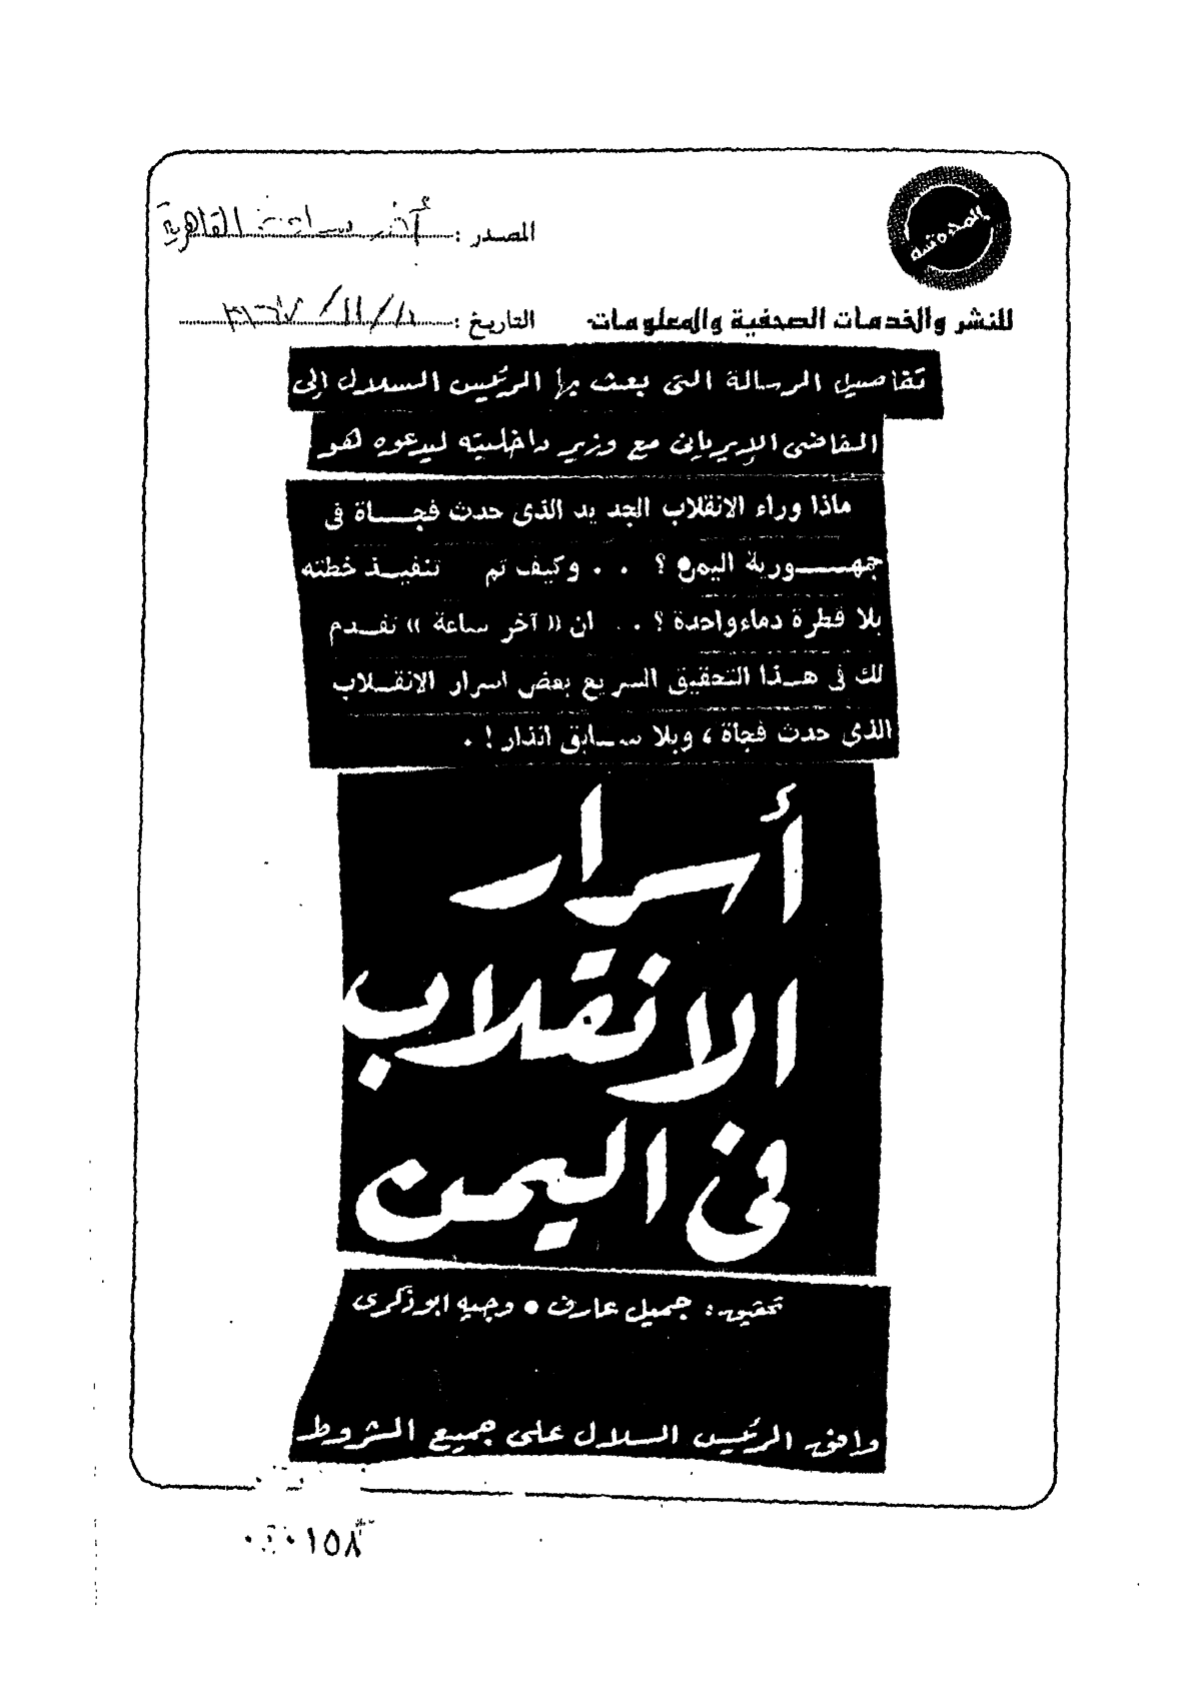 المصدر : آخر ساعة القاهرية
للنشر والخدمات الصحفية والمعلومات
التاريخ :
تفاصيل الرسالة التى بعث بها الرئيس السلال إلى
القاضى الإيريانى مع وزير داخليته ليدعوه لهو
ماذا وراء الانقلاب الجديد الذى حدث فجـاة فى
جمهــورية اليمن ؟ . . وكيف تم تنفيـذ خطته
بلا قطرة دماء واحدة ؟ . . ان « آخر ساعة » تقـدم
لك فى هـذا التحقيق السريع بعض اسرار الانقـلاب
الذى حدث فجاة ، وبلا سـابق انذار ! .
أسرار
الانقلاب
فى اليمن
تحقيق : جميل عارف ● وجيه ابو ذكرى
وافق الرئيس السلال على جميع الشروط